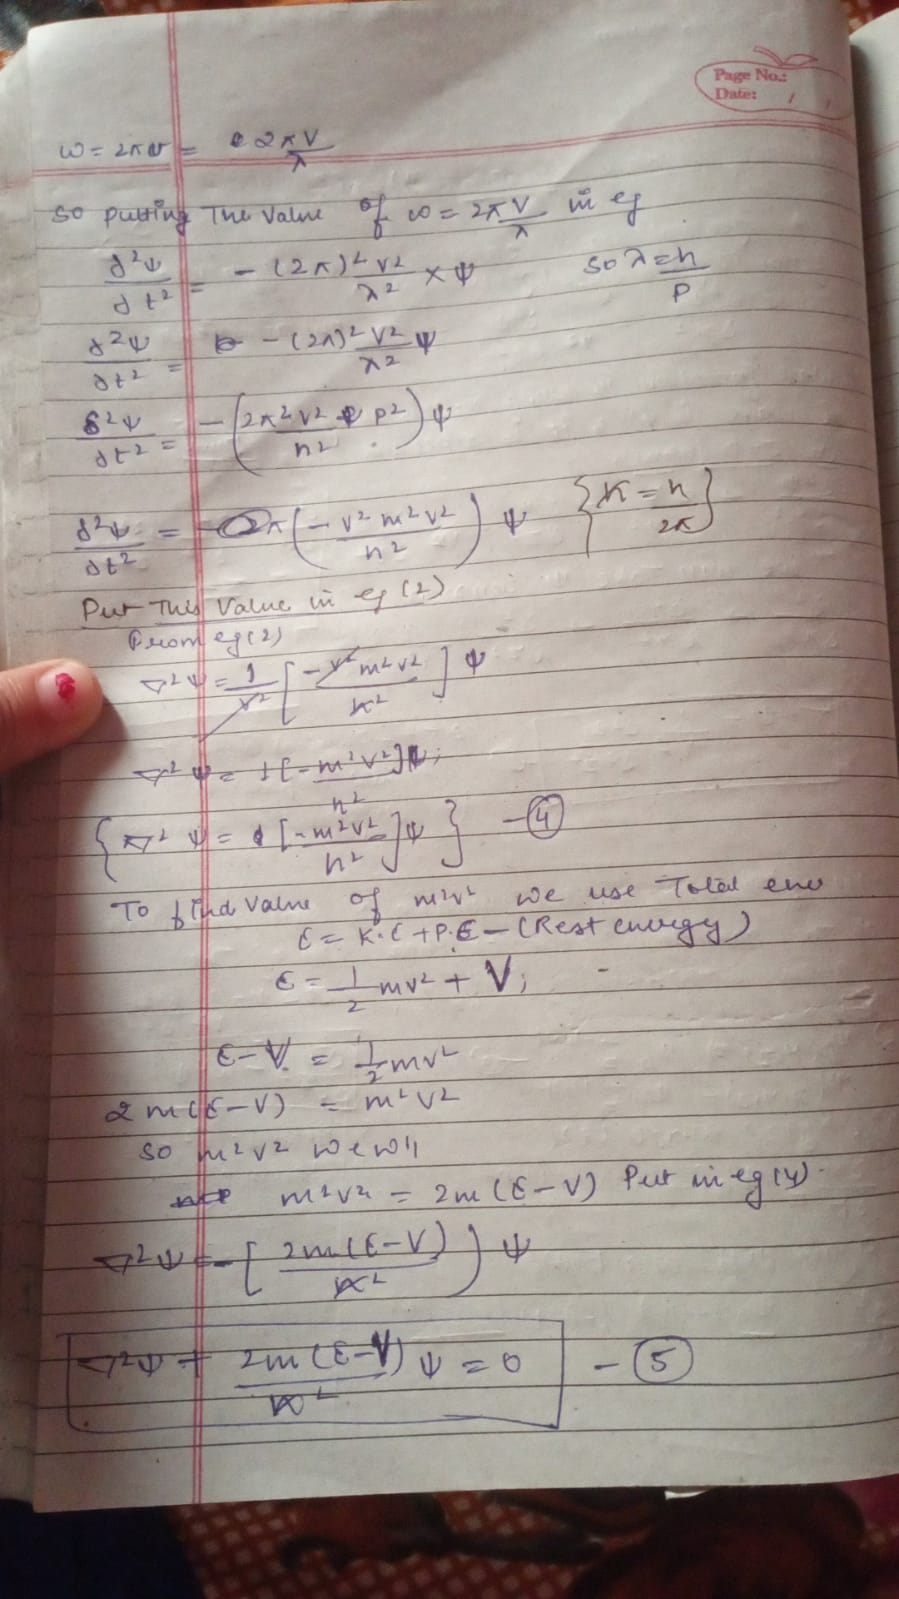 Page No.:
Date: / /
ω = 2πν = 2πV/λ
so putting The value of ω = 2πV/λ in eq
∂²ψ/∂t² = - (2π)² v²/λ² × ψ so λ = h/P
∂²ψ/∂t² = - (2π)² V²/λ² ψ
δ²ψ/∂t² = - (2π² v² P²/h²) ψ
∂²ψ/∂t² = π (- v² m² v²/h²) ψ {ħ = h/2π}
Put This Value in eq (2)
From eq (2)
∇²ψ = 1/v² [- v² m² v²/ħ²] ψ
∇²ψ = 1 [- m² v²/h²] ψ;
{∇²ψ = [- m² v²/h²] ψ} - (4)
To find value of m²v² we use Total ene
E = K.E + P.E - (Rest energy)
E = 1/2 mv² + V;
E - V = 1/2 mv²
2m(E-V) = m²v²
so m²v² we w'll
m²v² = 2m (E-V) Put in eq (4).
∇²ψ = - [2m(E-V)/ħ²] ψ
∇²ψ + 2m(E-V)/ħ² ψ = 0 - (5)